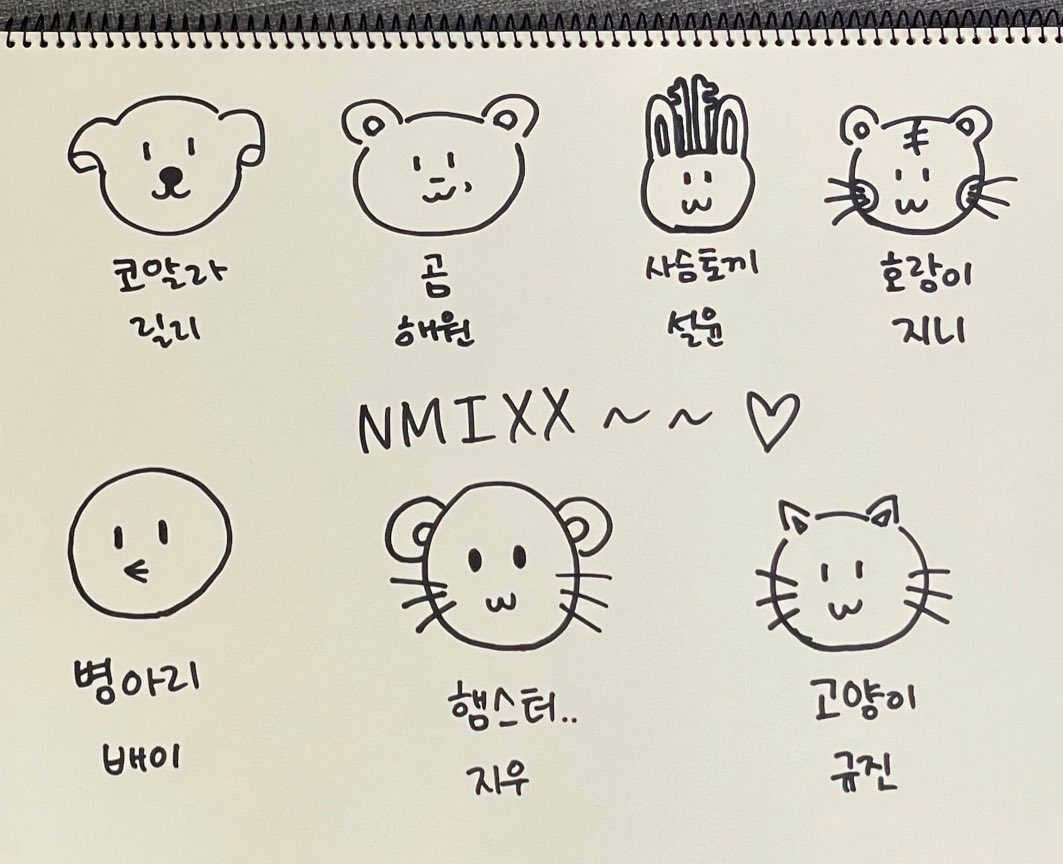 코알라
릴리
곰
해원
사슴토끼
설윤
호랑이
지니
NMIXX ~ ~ ♡
병아리
배이
햄스터..
지우
고양이
규진